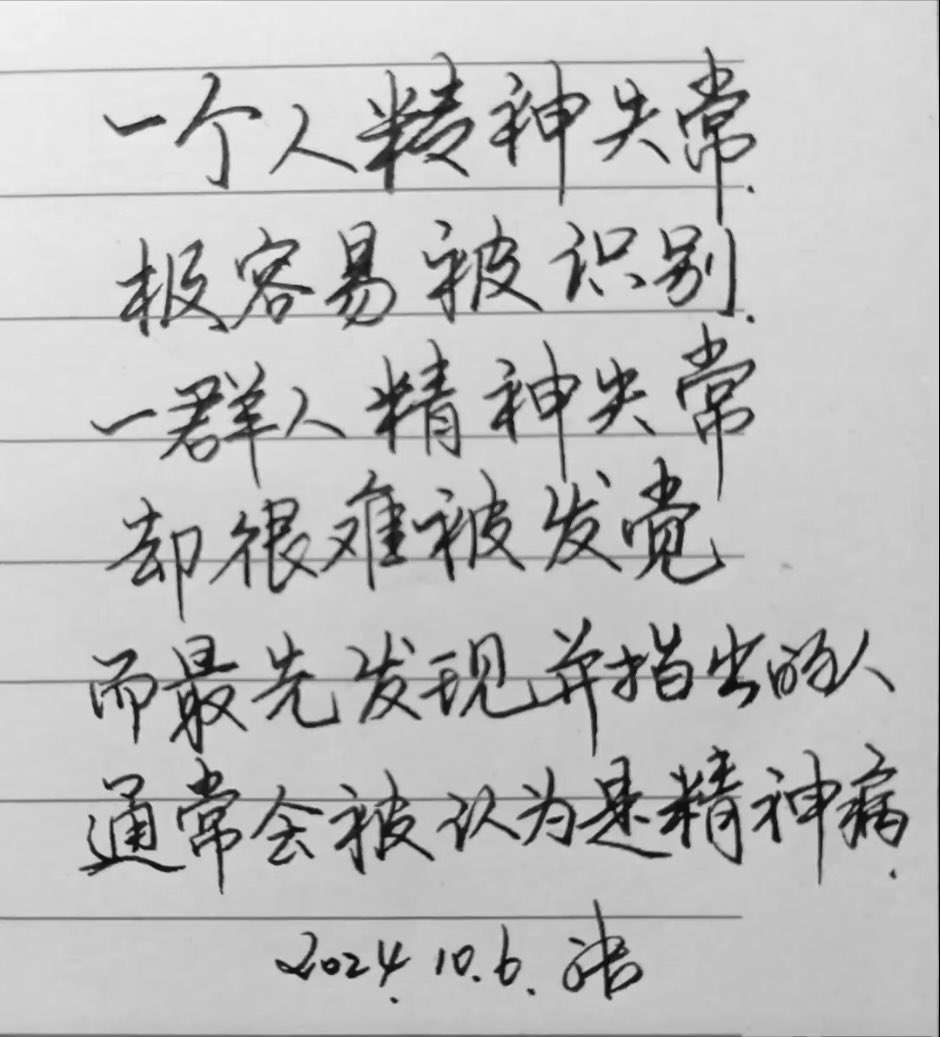 一个人精神失常.
极容易被识别.
一群人精神失常
却很难被发觉
而最先发现并指出的人
通常会被认为是精神病.
2024.10.6.